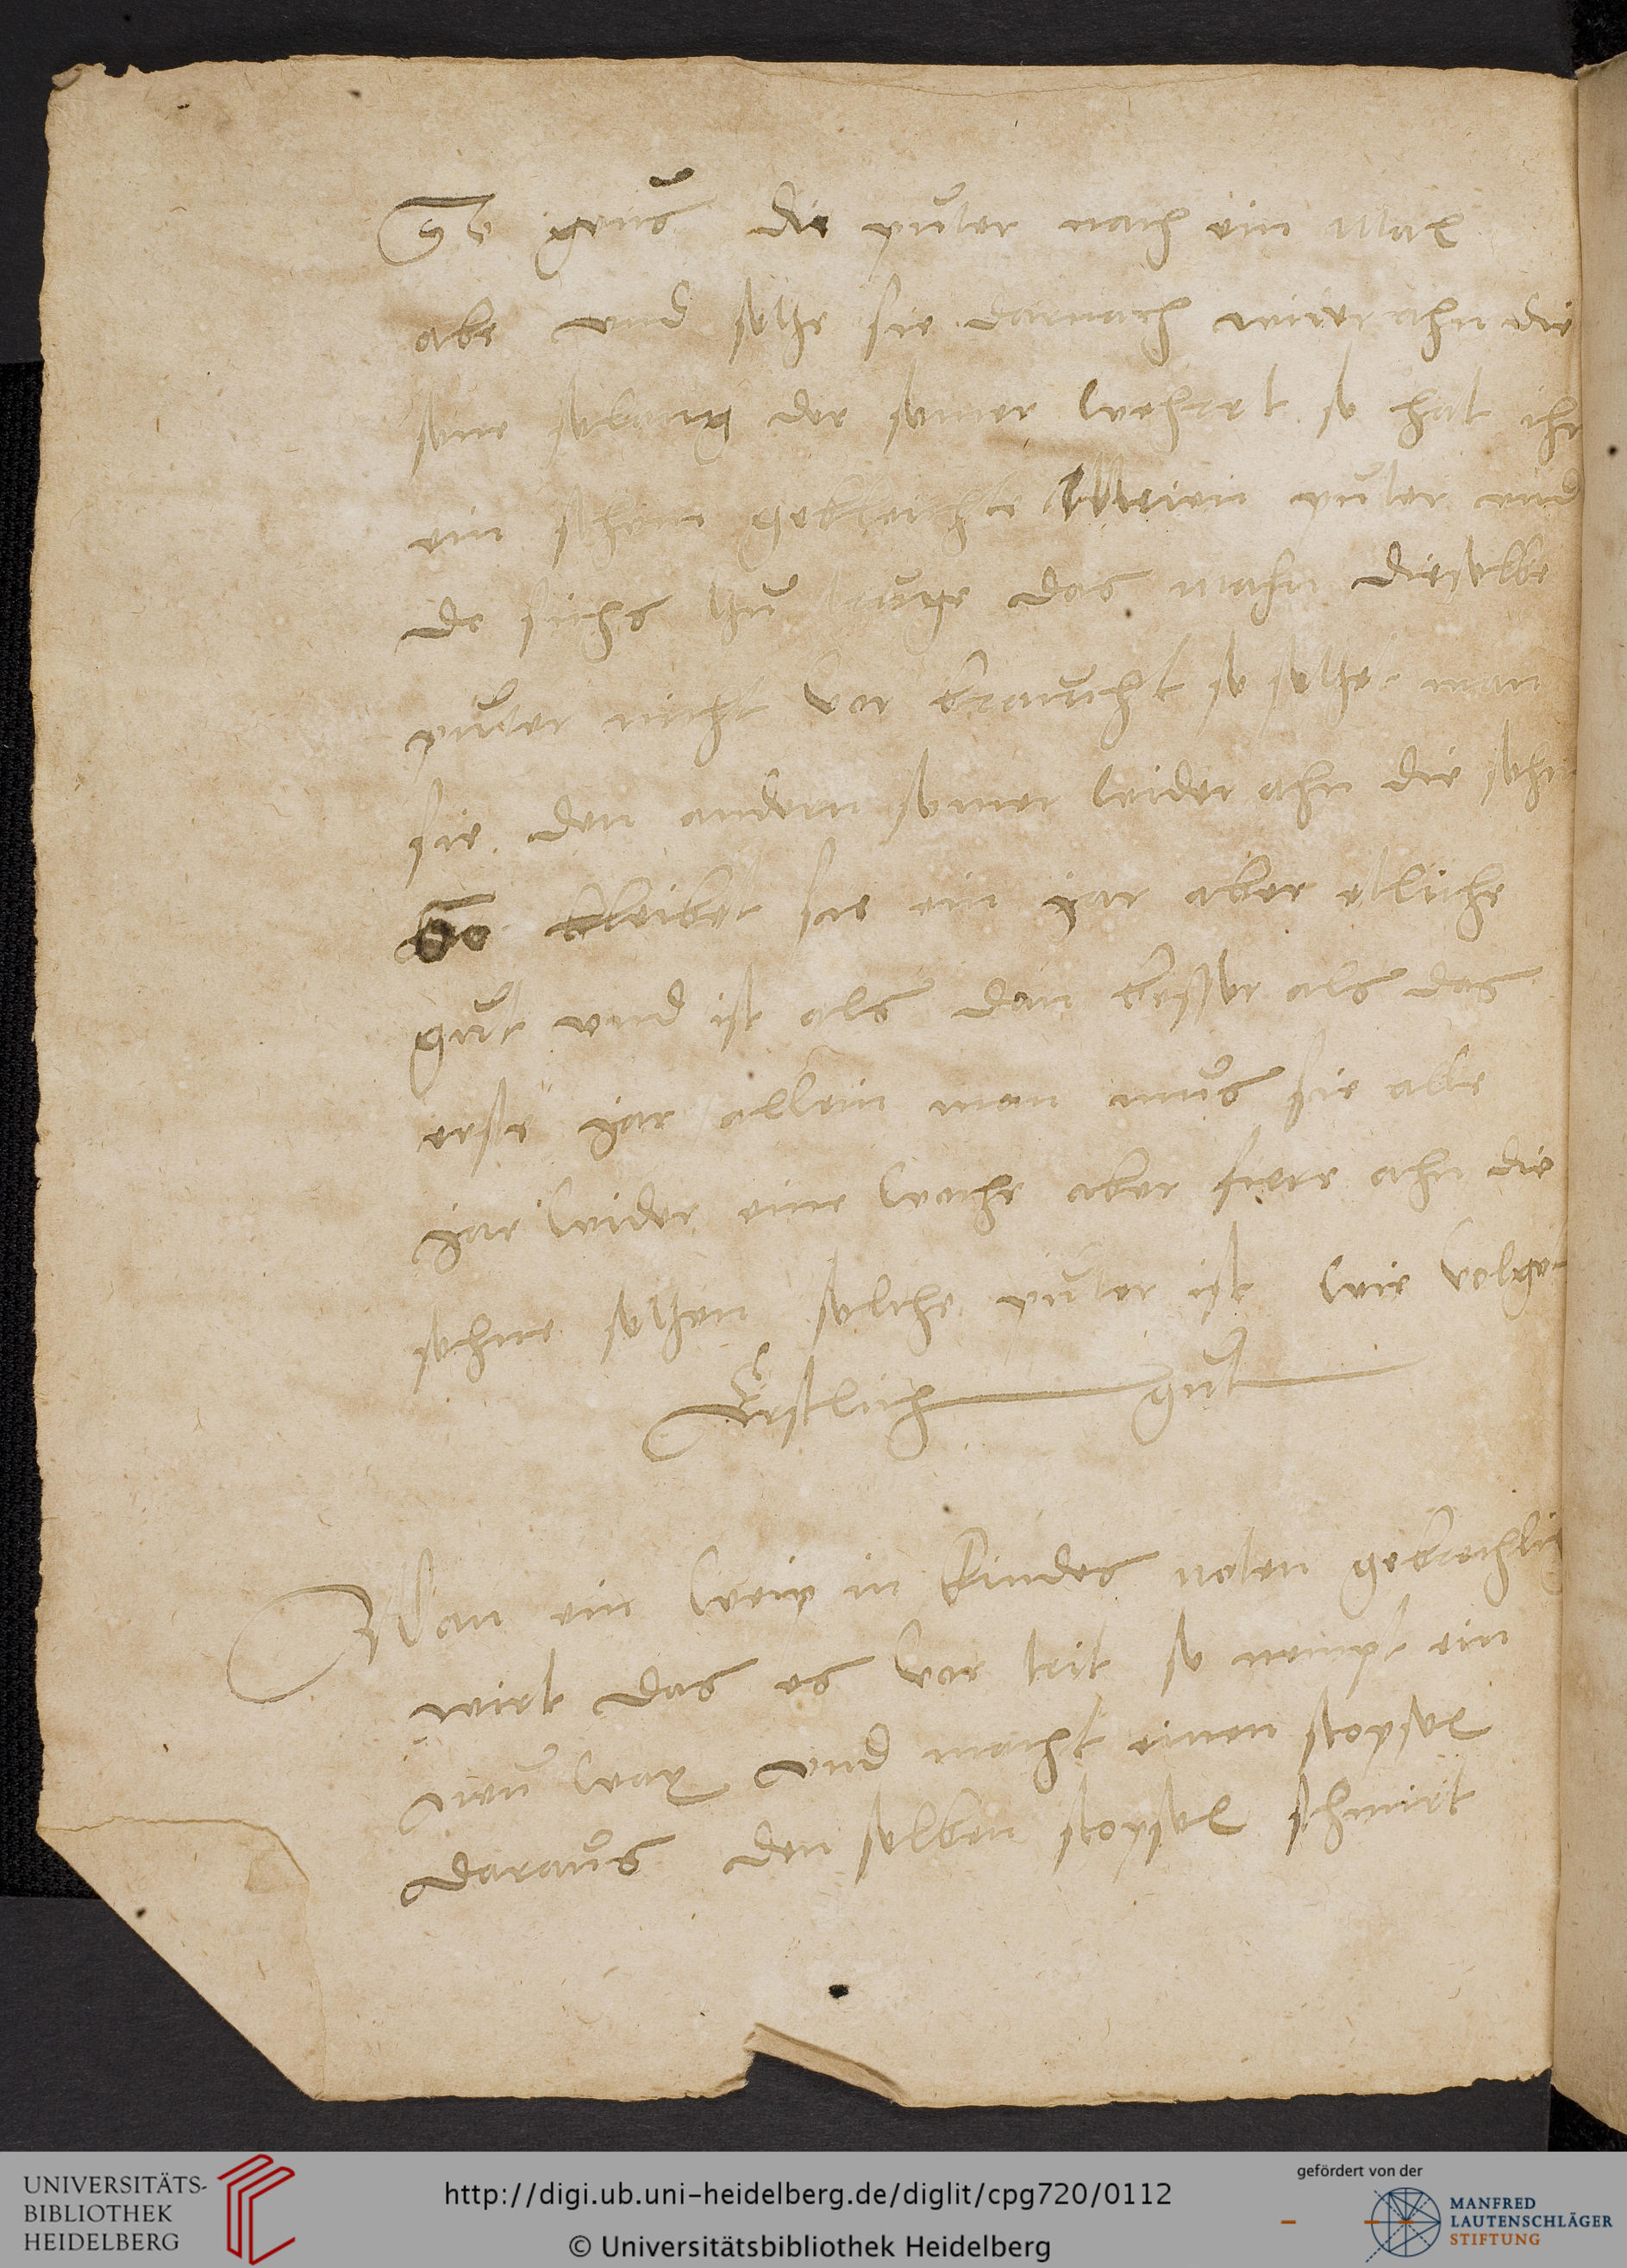 So geus die puter noch ein mal
abe vnd setze sie darnach wider ahn die
sune solang der somer wehret so hat ihr
ein schon gebleichte Meien puter vnd
de sichs zu truge das mahn dieselbe
puter nicht vor braucht so setzet man
sie den andern somer wider ahn die sohn
So bleibet sie ein Jar aber etliche
gut vnd ist als dan besser als das
erste Jar allein man mus sie alle
Jar wider eine woche aber fiere ahn die
sohne setzen solche puter ist wie volget
Erstlich gut
Wan ein weip in kindes noten gebrechlich
wirt das es vor trit so nempt ein
neu wax vnd macht einen stopsel
daraus den selben stopsel schmirt
UNIVERSITÄTS-
BIBLIOTHEK
HEIDELBERG
http://digi.ub.uni-heidelberg.de/diglit/cpg720/0112
© Universitätsbibliothek Heidelberg
gefördert von der
MANFRED
LAUTENSCHLÄGER
STIFTUNG